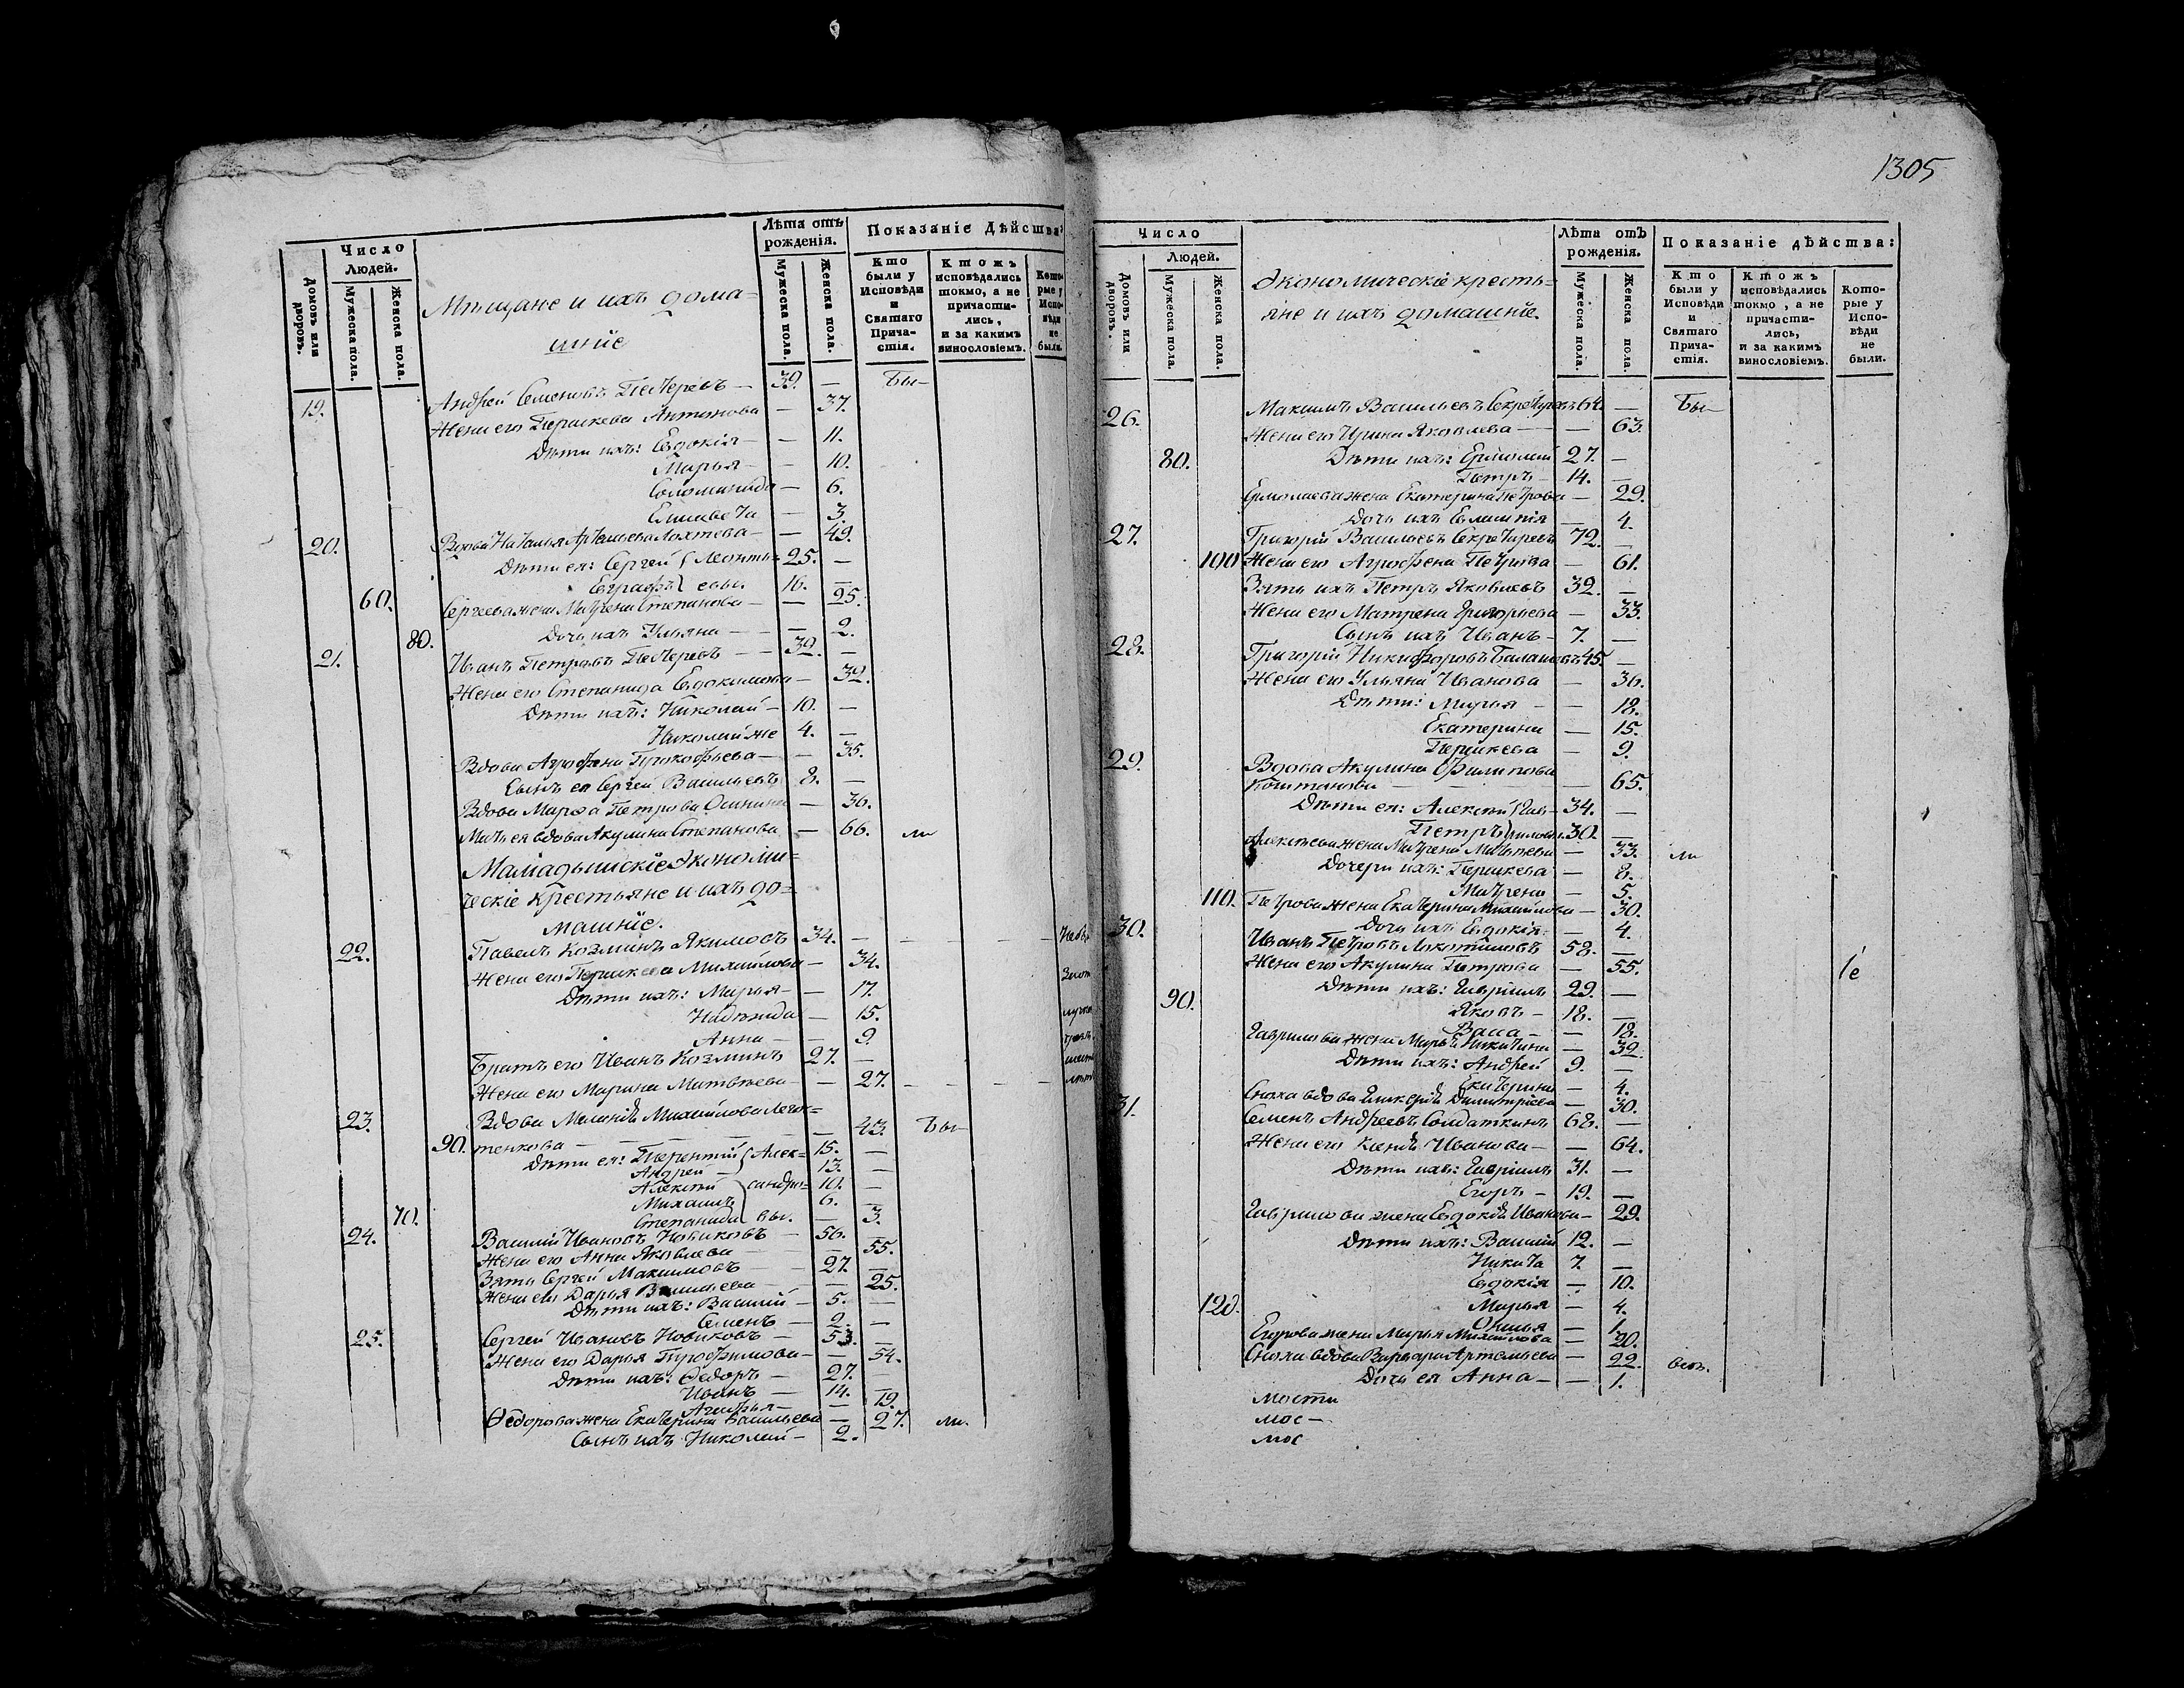 1305
Число
Людей.
Домовъ или дворовъ.
Мужеска пола.
Женска пола.
Мѣщане и ихъ дома=
шнiе
Лѣта отъ рожденiя.
Мужеска пола.
Женска пола.
Показанiе Дѣйства:
Кто были у Исповѣди и Святаго Причастiя.
Ктожъ исповѣдались токмо, а не причастились, и за какимъ винословiемъ.
Которые у Исповѣди не были.
19. Андрей Семеновъ — 39. — Бы-
Жена его Параскева Антонова — 37.
Дѣти ихъ: Евдокiя — — 11.
Марья — — 10.
Соломанида — 6.
Елисавета — 3.
20. Вдова Наталья — 49.
Дѣти ея: Сергей { Леонть= 25. —
Евграфъ } евы. 16. —
60. Сергеева жена Матрена Степанова — — 25.
80. Дочь ихъ Ульяна — — 2.
21. Иванъ Петровъ — — 39. —
Жена его Степанида Евдокимова — 39.
Дѣти ихъ: Николай — 10. —
Николай же 4. —
Вдова Агрофена Прокофьева — — 35.
Сынъ ея Сергей Васильевъ 8. —
Вдова Марфа Петрова — 36.
Мать ея вдова Акулина Степанова — 66. ли
Мамадышскiе Экономи=
ческiе крестьяне и ихъ до=
машнiе.
22. Павелъ Козминъ Якимовъ 34. — — — — —
Жена его Параскева Михайлова — 34.
Дѣти ихъ: Марья — — 17.
Надежда — 15.
Анна — — 9.
Братъ его Иванъ Козминъ 27. —
Жена его Марина Матвѣева — — 27. — — — —
23. Вдова Меланiя Михайлова
90. — — — 43. Бы-
Дѣти ея: Терентiй { Алек= 15. —
Андрей — 13. —
Алексѣй } сандро= 10. —
Михаилъ 6. —
70. Степанида вы. — 3.
24. Василiй Ивановъ Новиковъ — 56. —
Жена его Анна Яковлева — — 55.
Зять Сергей Максимовъ — 27. —
Жена его Дарья Васильева — — 25.
Дѣти ихъ: Василiй — 5. —
Семенъ — 2. —
25. Сергей Ивановъ Новиковъ — 53. —
Жена его Дарья Трофимова — — 54.
Дѣти ихъ: Ѳедоръ — 27. —
Иванъ — 14. —
Агафья — — 19.
Ѳедорова жена Екатерина Васильева — 27. ли.
Сынъ ихъ Николай — 2.
Число
Людей.
Домовъ или дворовъ.
Мужеска пола.
Женска пола.
Экономическiе кресть=
яне и ихъ домашнiе.
Лѣта отъ рожденiя.
Мужеска пола.
Женска пола.
Показанiе дѣйства:
Кто были у Исповѣди и Святаго Причастiя.
Ктожъ исповѣдались токмо, а не причастились, и за какимъ винословiемъ.
Которые у Исповѣди не были.
26. Максимъ Васильевъ Секретаревъ 64. — Бы-
Жена его Ирина Яковлева — — 63.
80. Дѣти ихъ: Ермолай 27. —
Петръ — 14. —
Ермолаева жена Екатерина Петрова — 29.
Дочь ихъ — 4.
27. Григорiй Васильевъ Секретаревъ 72. —
100 Жена его Агрофена Петрова — 61.
Зять ихъ Петръ Яковлевъ 32. —
Жена его Матрена Григорьева — 33.
Сынъ ихъ Иванъ — 7. —
28. Григорiй Никифоровъ Балашевъ 45. —
Жена его Ульяна Иванова — 36.
Дѣти: Марья — — 18.
Екатерина — 15.
Параскева — 9.
29. Вдова Акулина Филипова
Коштанова — — — — 65.
Дѣти ея: Алексѣй { Гав= 34. —
Петръ } риловы. 30. —
Алексѣева жена Матрена Матвѣева — 33. ли
Дочери ихъ: Параскева — 8.
Матрена — 5.
110. Петрова жена Екатерина Михайлова — 30.
Дочь ихъ Евдокiя — 4.
30. Иванъ Петровъ 58. —
Жена его Акулина Петрова — 55.
90. Дѣти ихъ: Гаврiилъ 29. —
Яковъ — 18. —
Васса — — 18.
Гаврилова жена Марья Никитина — 32.
Дѣти ихъ: Андрей 9. —
Екатерина — 4.
Сноха вдова Гликерiя Димитрiева — 30.
31. Семенъ Андреевъ Солдаткинъ 68. —
Жена его Ксенiя Иванова — — 64.
Дѣти ихъ: Гаврiилъ 31. —
Егоръ — 19. —
Гаврилова жена Евдокiя Иванова — 29.
Дѣти ихъ: Василiй 12. —
Никита 7. —
Евдокiя — 10.
120. Марья — 4.
— 1.
Егорова жена Марья Михайлова — 20.
Сноха вдова Варвара Артемьева — 22.
Дочь ея Анна — — 1.
мости
мос —
мос